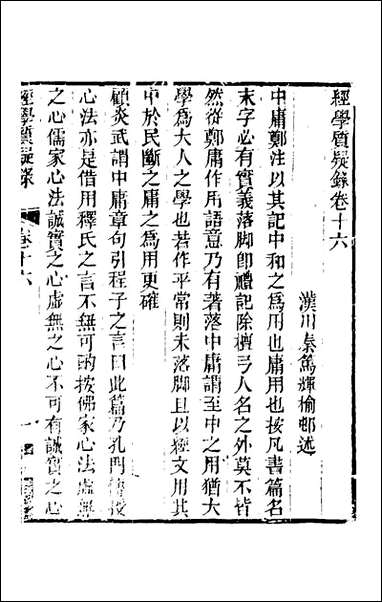 經學質疑錄卷十六
漢川秦篤輝榆邨述
中庸鄭注以其記中和之為用也庸用也按凡書篇名
末字必有實義落脚卽禮記除檀弓人名之外莫不皆
然從鄭庸作用語意乃有著落中庸謂至中之用猶大
學爲大人之學也若作平常則未落脚且以經文用其
中於民斷之庸之為用更確
顧炎武謂中庸章句引程子之言曰此篇乃孔門傳授
心法亦是借用釋氏之言不無可酌按佛家心法虛無
之心儒家心法誠實之心虛無之心不可有誠實之心
經學質疑錄
卷十六
一